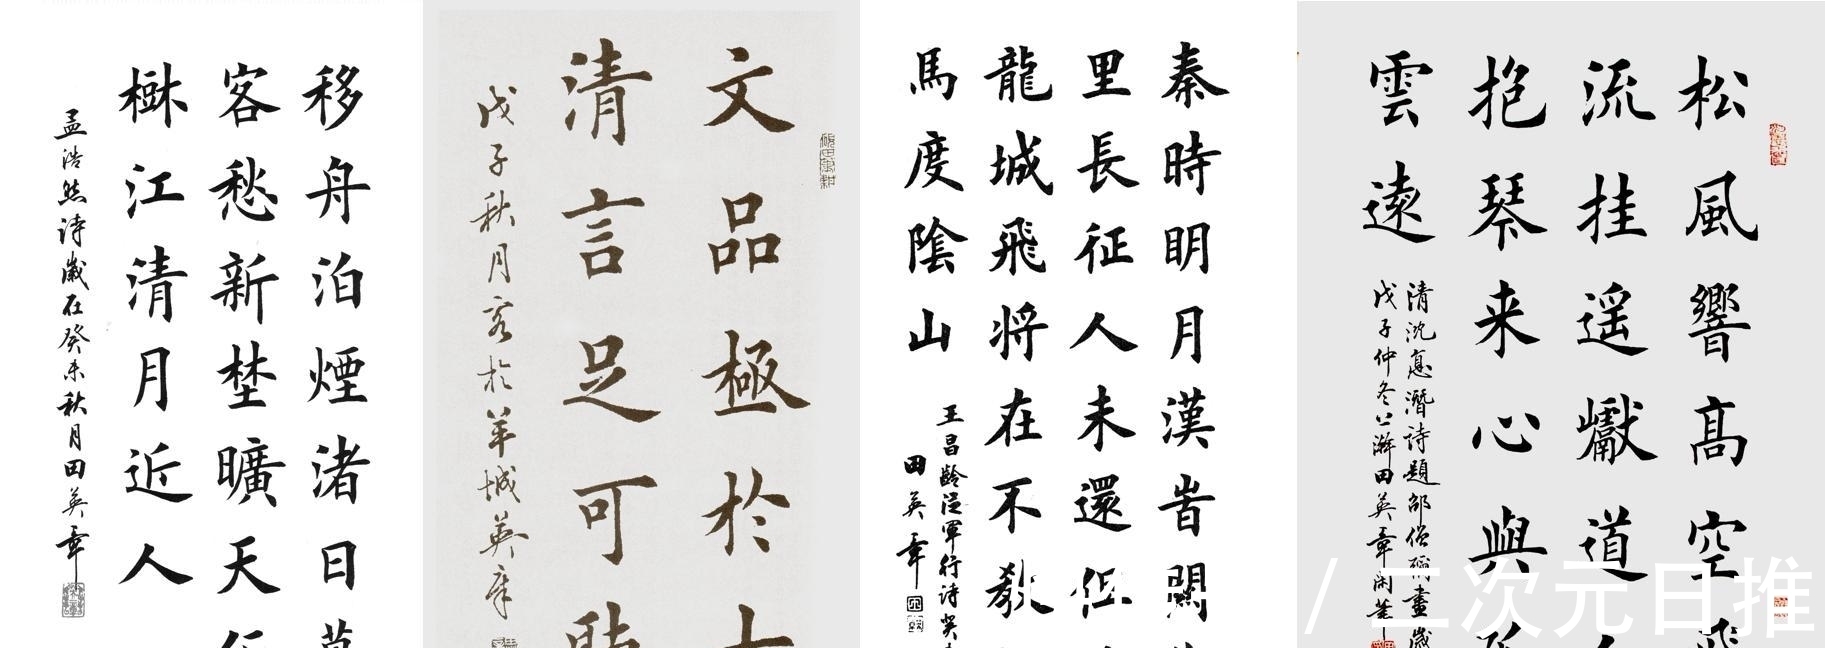 移舟泊煙渚日
客愁新埜曠天
樹江清月近人
孟浩然诗歲在癸未秋月田英章
文品極於
清言足可
戊子秋月客於羊城英章
秦時明月漢旹關
里長征人未還但
龍城飛将在不教
馬度陰山
王昌龄從軍行诗癸
田英章
松風響髙空
流挂遥巘道
抱琴来心與
雲遠
清沈德潜诗題邵僧彌畫歲
戊子仲冬田英章闲筆
/ 二次元日推